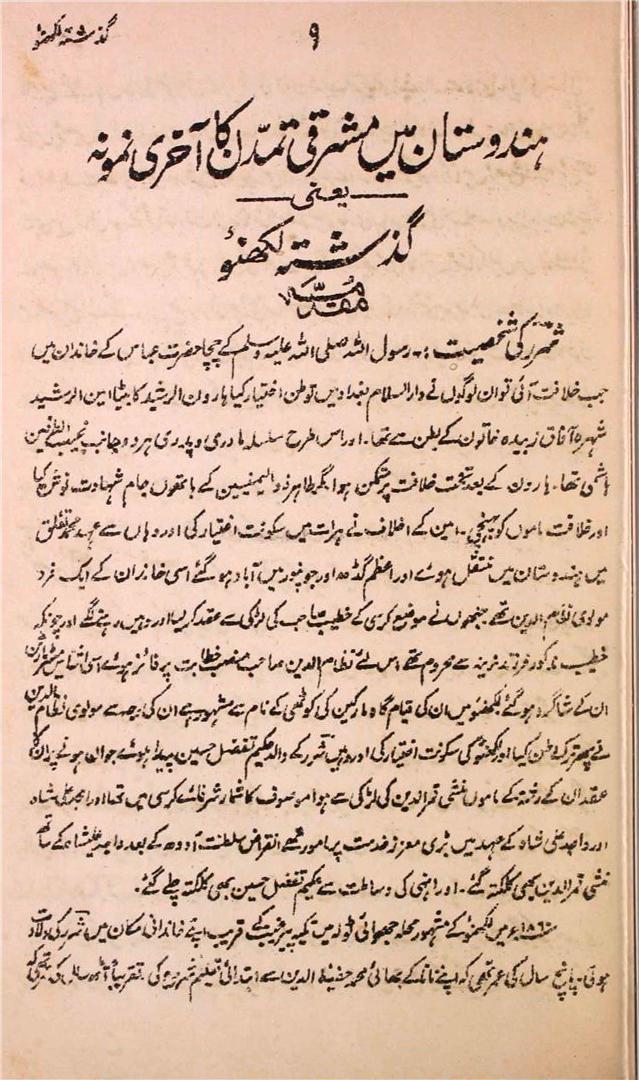 گذشتہ لکھنؤ
۹
ہندوستان میں مشرقی تمدّن کا آخری نمونہ
یعنی
گذشتہ لکھنؤ
مقدّمہ
شررؔ کی شخصیت :۔ رسول اللہ صلی اللہ علیہ وسلم کے چچا حضرت عباس کے خاندان میں
جب خلافت آئی تو ان لوگوں نے دارالسلام بغداد میں توطن اختیار کیا ہارون الرشید کا بیٹا امین الرشید
شہرۂ آفاق زبیدہ خاتون کے بطن سے تھا۔ اور اس طرح سلسلہ مادری و پدری ہر دو جانب نجیب الطرفین
ہاشمی تھا۔ ہارون کے بعد تخت خلافت پر متمکن ہوا مگر طاہر ذو الیمنیین کے ہاتھوں جام شہادت نوش کیا
اور خلافت ماموں کو پہنچی۔ امین کے اخلاف نے ہرات میں سکونت اختیار کی اور وہاں سے عہد محمد تغلق
میں ہندوستان میں منتقل ہوئے اور اعظم گڈھ اور جونپور میں آباد ہو گئے اسی خاندان کے ایک فرد
مولوی نظام الدین تھے جنھوں نے موضع کرسی کے خطیب صاحب کی لڑکی سے عقد کر لیا اور وہیں رہنے لگے اور چونکہ
خطیب مذکور فرزند نرینہ سے محروم تھے اس لئے نظام الدین صاحب منصب خطابت پر فائز ہوئے اسی اثنا میں مسٹر مارٹن
ان کے شاگرد ہو گئے لکھنؤ میں ان کی قیام گاہ مارکین کی کوٹھی کے نام سے مشہور ہے ان کی وجہ سے مولوی نظام الدین
نے پھر ترک وطن کیا اور لکھنؤ کی سکونت اختیار کی اور وہیں شرر کے والد حکیم تفضل حسین پیدا ہوئے جوان ہونے پر ان کا
عقد ان کے رشتہ کے ماموں منشی قمرالدین کی لڑکی سے ہوا موصوف کا شمار شرفائے کرسی میں تھا اور امجد علی شاہ
اور واجد علی شاہ کے عہد میں بڑی معزز خدمت پر مامور تھے انقراض سلطنت اودھ کے بعد واجد علیشاہ کے ساتھ
منشی قمرالدین بھی کلکتہ گئے۔ اور انہی کی وساطت سے حکیم تفضل حسین بھی کلکتہ چلے گئے۔
سنہ ۱۸۶۰ء میں لکھنؤ کے مشہور محلہ جھوائی ٹولہ میں تکیہ پیر غیب کے قریب اپنے خاندانی مکان میں شرر کی ولادت
ہوئی۔ پانچ سال کی عمر تھی کہ اپنے نانا کے بھائی محمد حفیظ الدین سے ابتدائی تعلیم شروع کی۔ تقریباً آٹھ سال کی عمر تھی کہ